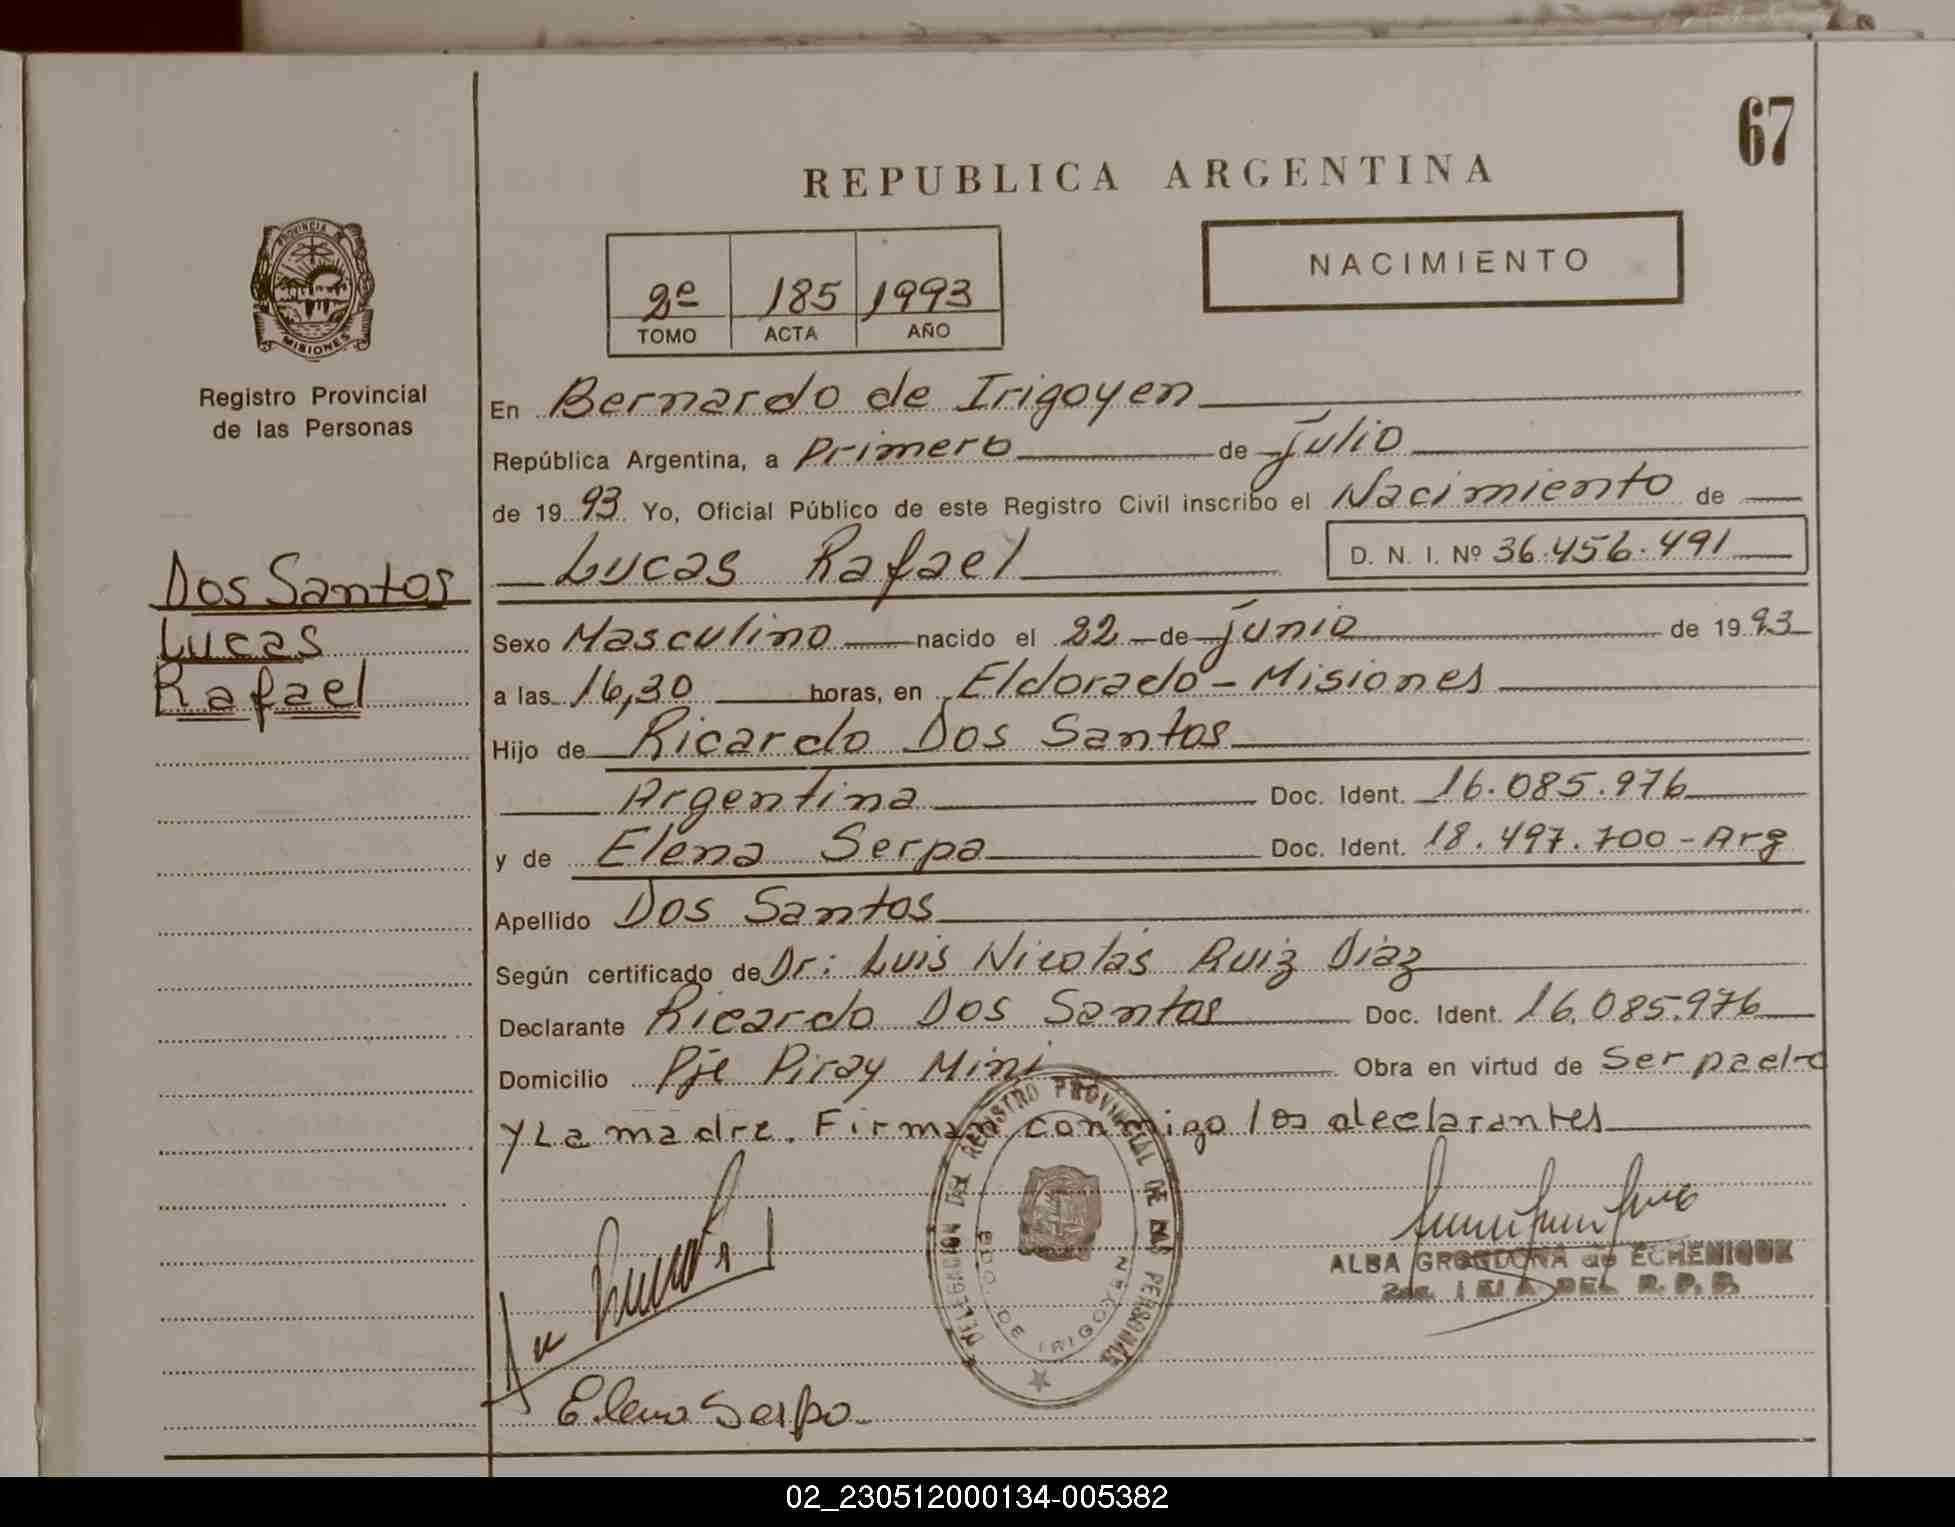 67
REPUBLICA ARGENTINA
PROVINCIA
MISIONES
Registro Provincial
de las Personas
NACIMIENTO
2º 185 1993
TOMO ACTA AÑO
En Bernardo de Irigoyen
República Argentina, a primero de julio
de 1993 Yo, Oficial Público de este Registro Civil inscribo el Nacimiento de
Lucas Rafael D. N. I. Nº 36.456.491
Dos Santos
Lucas
Rafael
Sexo Masculino nacido el 22 de junio de 1993
a las 16,30 horas, en Eldorado - Misiones
Hijo de Ricardo Dos Santos
Argentina Doc. Ident. 16.085.976
y de Elena Serpa Doc. Ident. 18.497.700 - Arg
Apellido Dos Santos
Según certificado de Dr: Luis Nicolás Ruiz Diaz
Declarante Ricardo Dos Santos Doc. Ident. 16.085.976
Domicilio Pje Piray Mini Obra en virtud de Ser pael-c
y La madre. Firman conmigo los declarantes
DELEGACION DEL REGISTRO PROVINCIAL DE LAS PERSONAS
BDO. DE IRIGOYEN
ALBA GRONDONA de ECHENIQUE
DEL R. P. P.
Elena Serpa
02_230512000134-005382